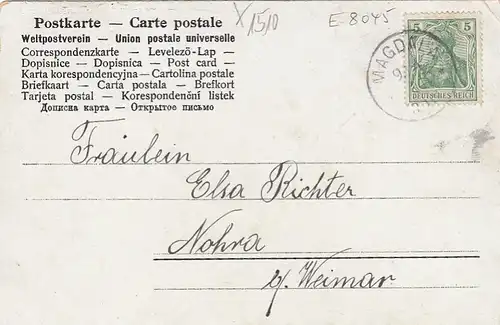 Postkarte — Carte postale
Weltpostverein — Union postale universelle
Correspondenzkarte — Levelező-Lap —
Dopisnice — Dopisnica — Post card —
Karta korespondencyjna — Cartolina postale
Briefkaart — Carta postala — Brefkort
Tarjeta postal — Korespondenční listek
Дописна карта — Открытое письмо
X 1510
E 8045
5 5
DEUTSCHES REICH
MAGDALA
Fräulein
Elsa Richter
Nohra
b/. Weimar